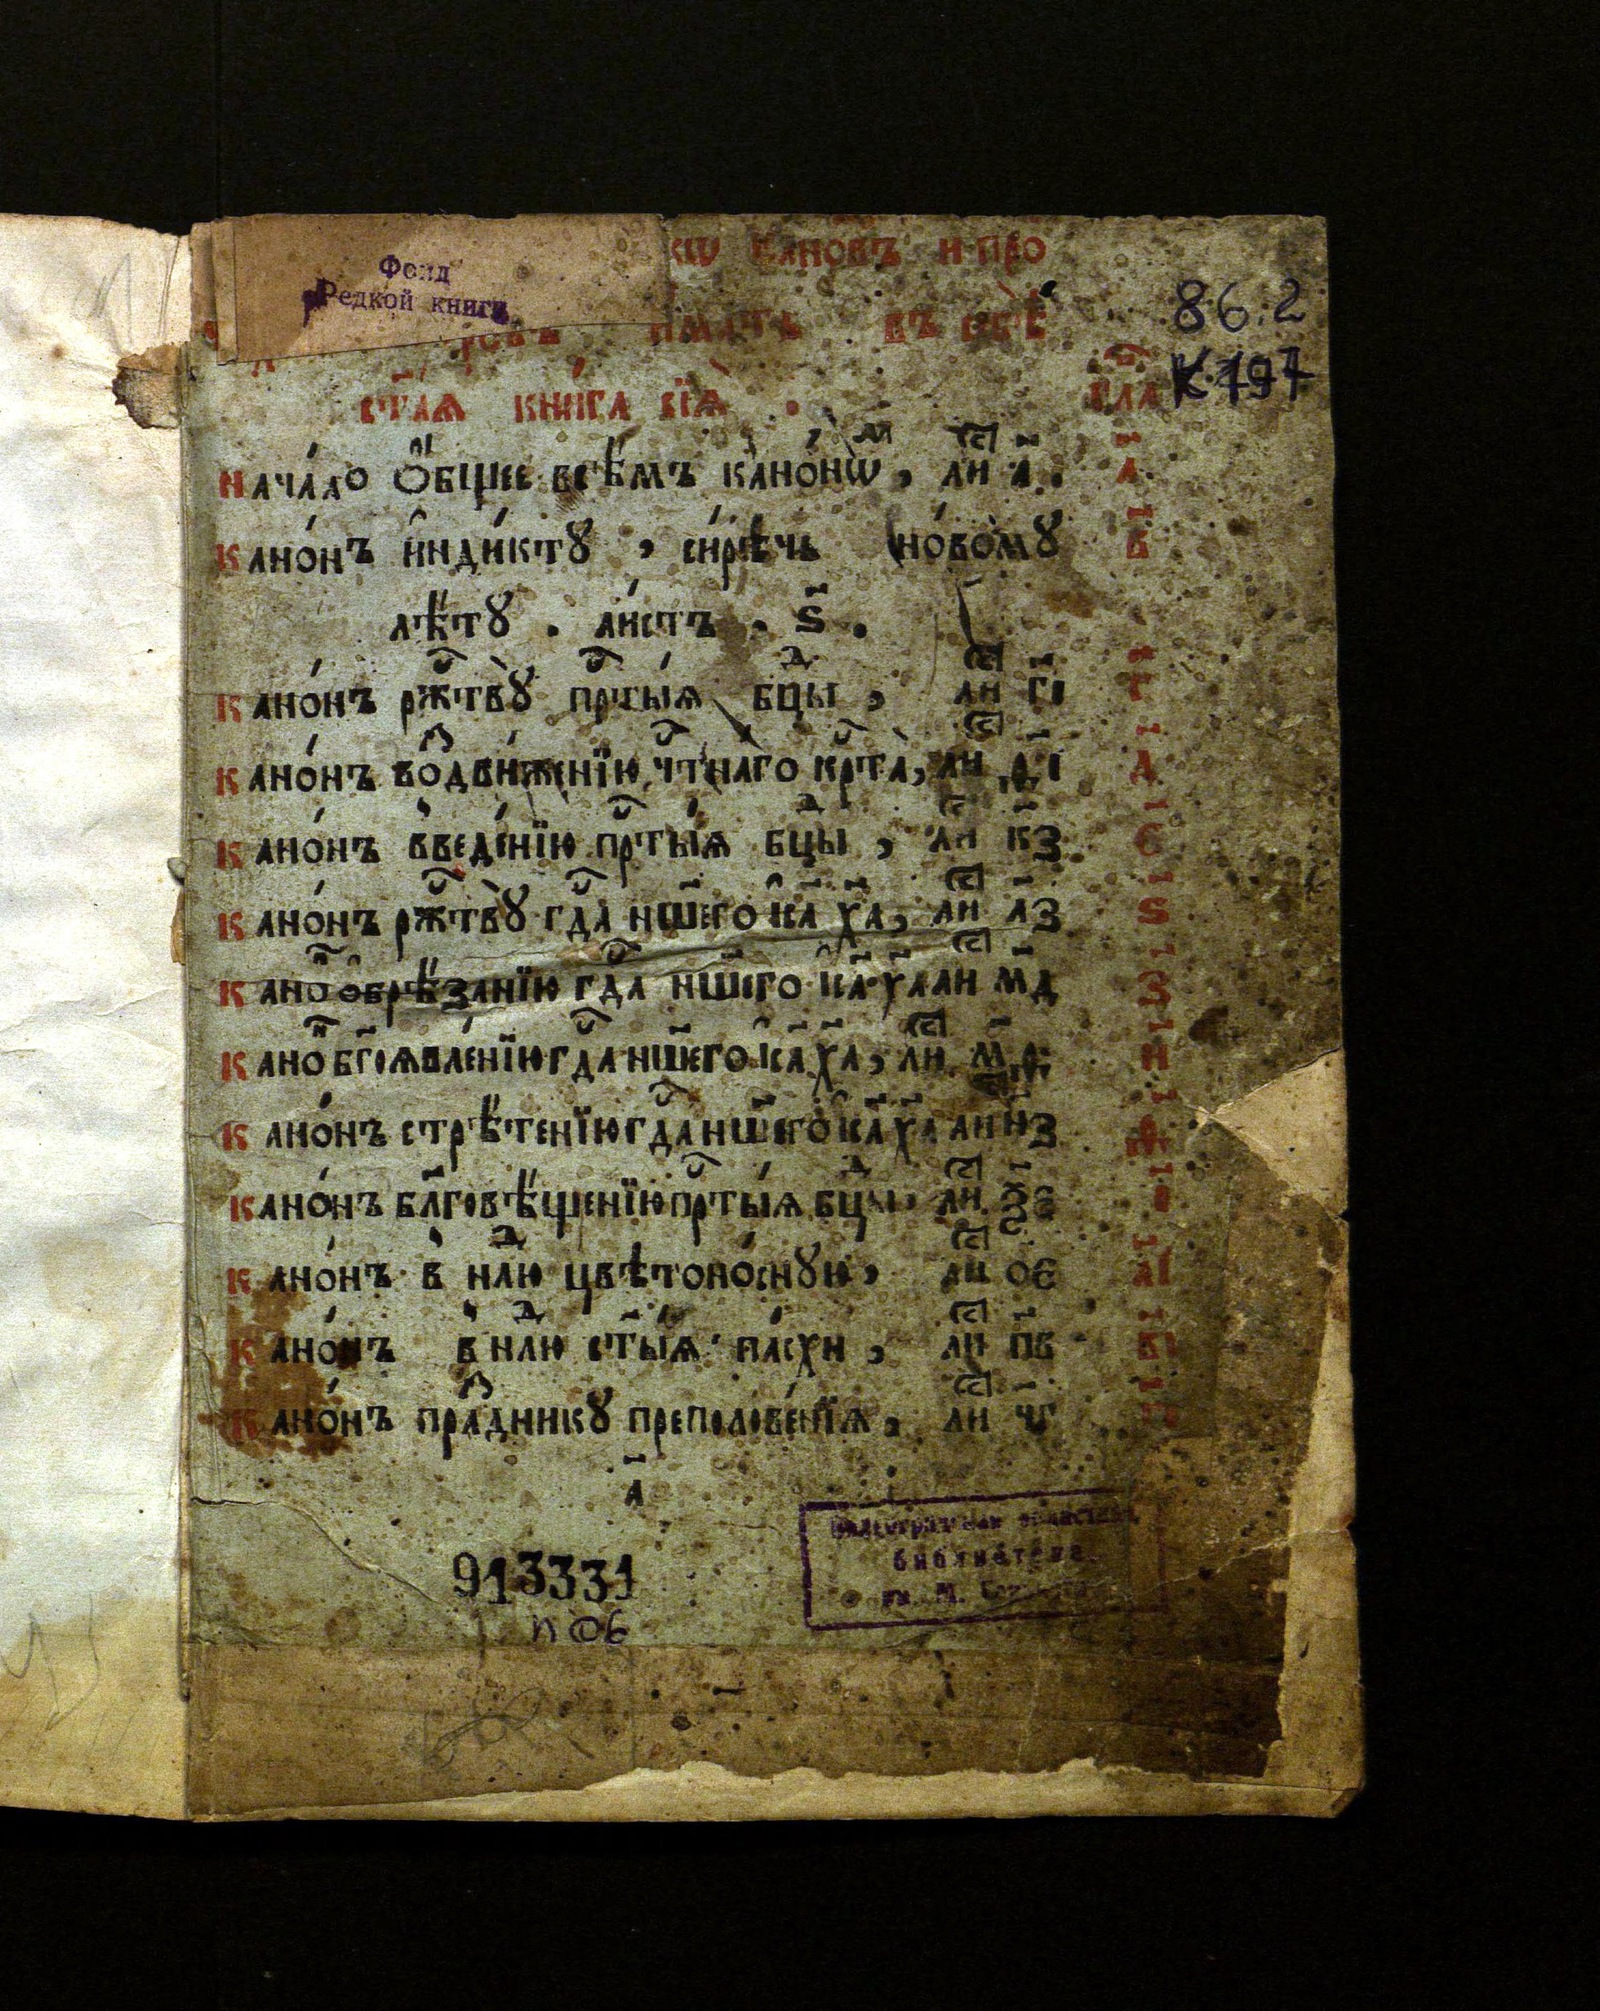 Фонд
Редкой книги
канѡвъ и про
имать въ себѣ
ст҃ая книга сїѧ .
гла
86.2
К 797
Начало Ѻбщее всѣмъ канонѡ , ли а҃ . а҃
Канонъ индикту , сирѣчь новому в҃
лѣту . листъ . ѕ҃ .
Канонъ ржⷭ҇тву прⷭ҇тыѧ бцⷣы , лиⷭ҇ г҃і г҃
Канонъ воⷥдвиженїю чтⷭ҇наго крⷭ҇та , лиⷭ҇ д҃і д҃
Канонъ введенїю прⷭ҇тыѧ бцⷣы , лиⷭ҇ к҃з є҃
Канонъ ржⷭ҇тву гдⷭ҇а нш҃его і҃са х҃а , лиⷭ҇ л҃з ѕ҃
Каноⷩ обрѣзанїю гдⷭ҇а нш҃его і҃са х҃а лиⷭ҇ м҃д з҃
Каноⷩ бг҃оѧвленїю гдⷭ҇а нш҃его і҃са х҃а , лиⷭ҇ и҃
Канонъ стрѣтенїю гдⷭ҇а нш҃его і҃са х҃а ли н҃з
Канонъ бл҃говѣщенїю прⷭ҇тыѧ бцⷣы лиⷭ҇ ѯ҃є і҃
Канонъ в нⷣлю цвѣтоносную , лиⷭ҇ о҃є а҃і
Канонъ в нⷣлю ст҃ыѧ пасхи , лиⷭ҇ п҃в в҃і
Канонъ праⷥднику преполовенїѧ , лиⷭ҇ ч҃г
а҃
913331
п 06
библиотека
им. М. Горького